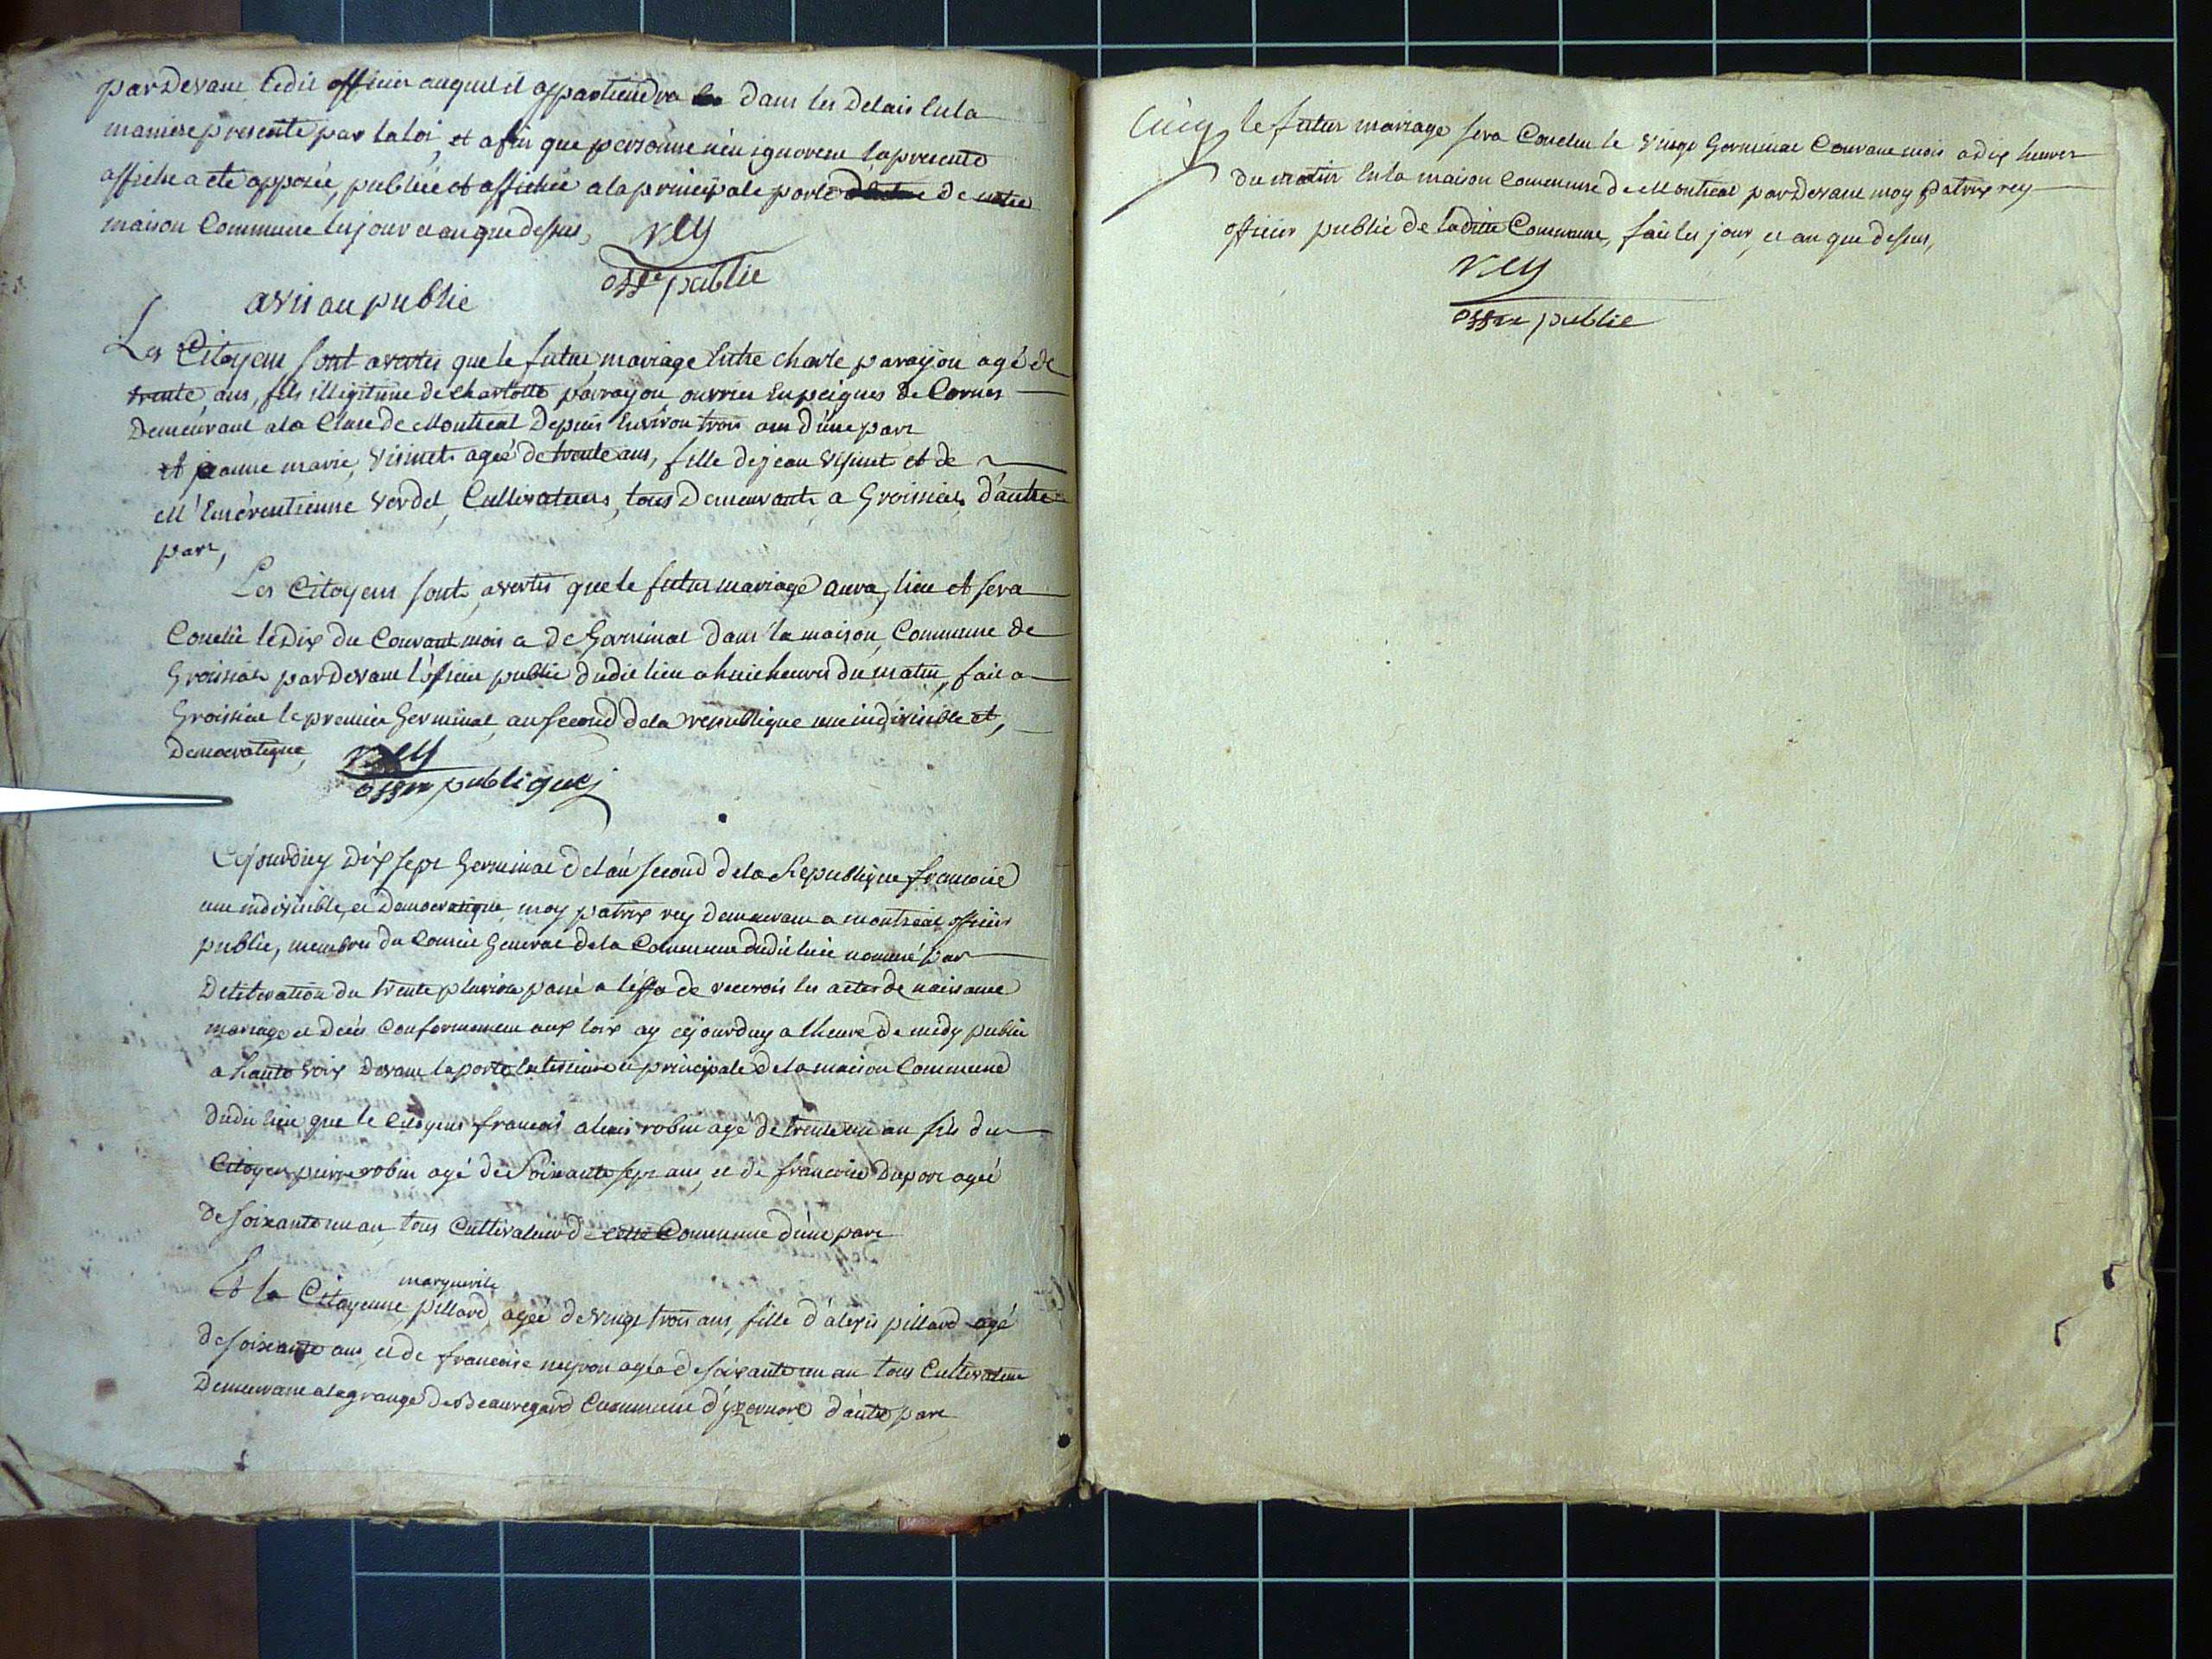 pardevant ledit officier auquel il appartiendra dans les delais en la
maniere presente par la loi, et afin que personne n'en ignorent la presente
affiche a ete apposée, publiée et affichée a la principale porte de notre
maison Commune les jour et an que dessus,
rey
offr public
avis au public
Les Citoyens sont avertis que le futur mariage Entre charle parayon agé de
trente ans, fils illegitime de charlotte parayon ouvrier En peignes de Cornes
Demeurant a la Cluse de Montreal Depuis Environ trois ans d'une part
et jeanne marie, visinet agée de trente ans, fille de jean visinet et de
M Emerentienne verdet, Cultivateurs, tous Demeurants a Groissiat, d'autre
part,
Les Citoyens sont avertis que le futur mariage aura, lieu et sera
Conclu le dix du Courant mois a de Germinal dans la maison, Commune de
Groissiat pardevant l'officier public dudit lieu a huit heures du matin, fait a
Groissiat le premier Germinal, an second de la republique une indivisible et,
Democratique,
rey
offr publique
Cejourduy dix sept Germinal de l'an second de la Republique francoise
une indivisible, et Democratique, moy patrix rey demeurant a montreal officier
public, membres du Conseil General de la Commune dudit lieu nommé par
Deliberation du trente pluviose passé a l'effa de recevoir les actes de naissance
mariage et Deces Conformement aux loix ay cejourduy a lheure de midy publié
a haute voix devant la porte Exterieure et principale de la maison Commune
dudit lieu que le Citoyens francois alexis robin agé de trente un an fils du
Citoyen pierre robin agé de Soixante sept ans, et de francoise Duport agée
de soixante un an, tous Cultivateur de cette Commune d'une part
marguerite
Et la Citoyenne, pillard, agée de vingt trois ans, fille d'alexis pillard agé
de soixante ans, et de francoise neyron agée de soixante un an tous Cultivateur
Demeurant a la grange de Beauregard Commune d'yzernore d'autre part
le futur mariage sera Conclu le vingt Germinal Courant mois a dix heures
du matin En la maison Commune de Montreal pardevant moy patrix rey
officier public de ladite Commune, fait les jour, et an que dessus,
rey
offr public